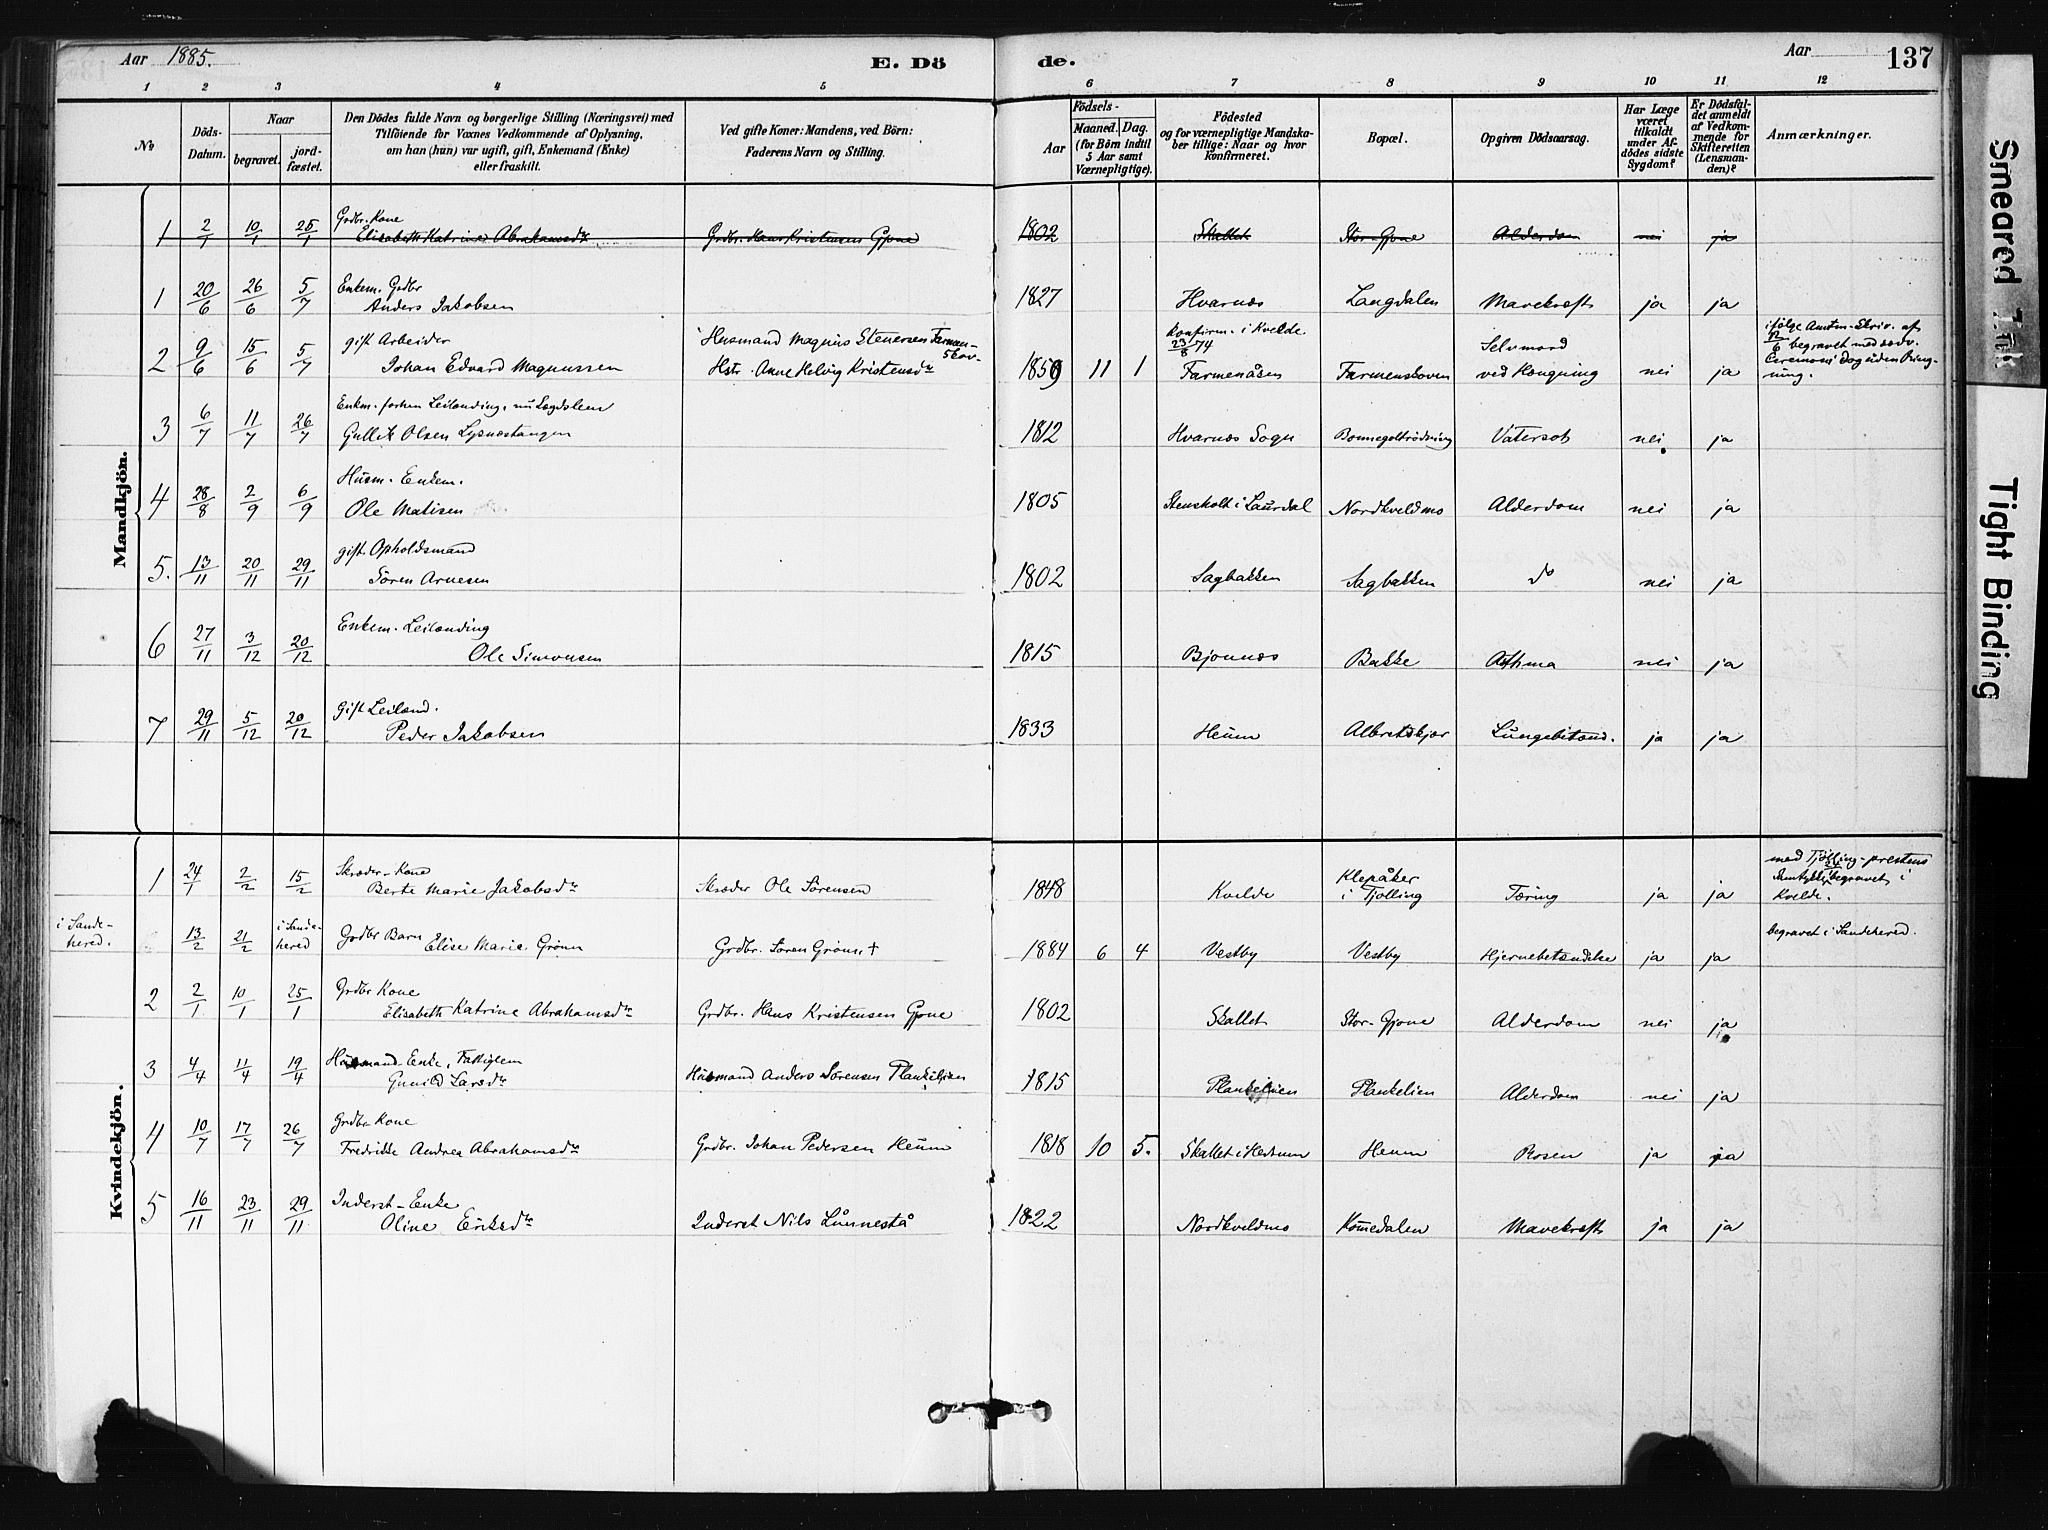 Aar 1885. E. Dö
de. Aar 137
1 2 3 4 5 6 7 8 9 10 11 12
No
Döds-Datum.
Naar
begravet.
jord-fæstet.
Den Dödes fulde Navn og borgerlige Stilling (Næringsvei) med
Tilföiende for Voxnes Vedkommende af Oplysning,
om han (hun) var ugift, gift, Enkemand (Enke)
eller fraskilt.
Ved gifte Koner: Mandens, ved Börn:
Faderens Navn og Stilling.
Födsels-
Aar
Maaned. Dag.
(for Börn indtil
5 Aar samt
Værnepligtige).
Födested
og for værnepligtige Mandska-
ber tillige: Naar og hvor
konfirmeret.
Bopæl.
Opgiven Dödsaarsag.
Har Læge
været
tilkaldt
under Af-
dödes sidste
Sygdom?
Er Dödsfal-
det anmeldt
af Vedkom-
mende for
Skifteretten
(Lensman-
den)?
Anmærkninger.
Mandkjön.
Grdbr. Kone
1 2/1 10/1 25/1 Elisabeth Katrine Abrahamsdtr Grdbr. Hans Kristensen Gjone 1802 Skallet Stor-Gjone Alderdom nei ja
Enkem. Grdbr
1 20/6 26/6 5/7 Anders Jakobsen 1827 Hvarnæs Langdalen Mavekræft ja ja
gift Arbeider Husmand Magnus Stenersen Farmen-skov- Konfirm. i Kvelde 23/8 74 Selvmord ifölge Amtm. Skriv. af
2 9/6 15/6 5/7 Johan Edvard Magnussen Hstr. Anne Helvig Kristensdtr 1859 11 1 Farmenåsen Farmenskoven ved Hængning nei ja 12/6 begravet med sedv.
Ceremoni dog uden Ring-
ning.
Enkem. forhen Leilending, nu Lægdslem
3 6/7 11/7 26/7 Gullik Olsen Lysnestangen 1812 Hvarnæs Sogn Bonnegoltrödning Vatersot nei ja
Husm. Enkem.
4 28/8 2/9 6/9 Ole Matisen 1805 Stensholt i Laurdal Nordkveldmo Alderdom nei ja
gift. Opholdsmand
5. 13/11 20/11 29/11 Sören Arnesen 1802 Sagbakken Sagbakken do nei ja
Enkem. Leilending
6 27/11 3/12 20/12 Ole Simonsen 1815 Bjonnæs Bakke Asthma nei ja
Gift Leilænd.
7 29/11 5/12 20/12 Peder Jakobsen 1833 Heum Albretskjær Lungebetænd. ja ja
Kvindekjön.
Skræder-Kone Klepåker med Tjölling-prestens
1 24/1 2/2 15/2 Berte Marie Jakobsdtr Skræder Ole Sörensen 1848 Kvelde i Tjölling Tæring ja ja Samtykke begravet i
Kvelde.
i Sande-hered. 13/2 21/2 i Sande-hered Grdbr Barn Elise Marie Grönn Grdbr. Sören Grönn † 1884 6 4 Vestby Vestby Hjernebetændelse ja ja begravet i Sandehered.
Grdbr Kone
2 2/1 10/1 25/1 Elisabeth Katrine Abrahamsdtr Grdbr. Hans Kristensen Gjone 1802 Skallet Stor-Gjone Alderdom nei ja
Husmand-Enke, Fattiglem
3 4/4 11/4 19/4 Gunild Larsdtr Husmand Anders Sörensen Plankelien 1815 Plankelien Plankelien Alderdom nei ja
Grdbr Kone
4 10/7 17/7 26/7 Fredrikke Andrea Abrahamsdtr Grdbr. Johan Pedersen Heum 1818 10 5. Skallet i Hedrum Heum Rosen ja ja
Inderst-Enke
5 16/11 23/11 29/11 Oline Eriksdtr Inderst Nils Lunnestå 1822 Nordkveldmo Komedalen Mavekræft ja ja
Smeared Ink
Tight Binding